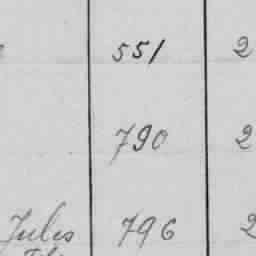 551 2
790 2
Jules 796 2